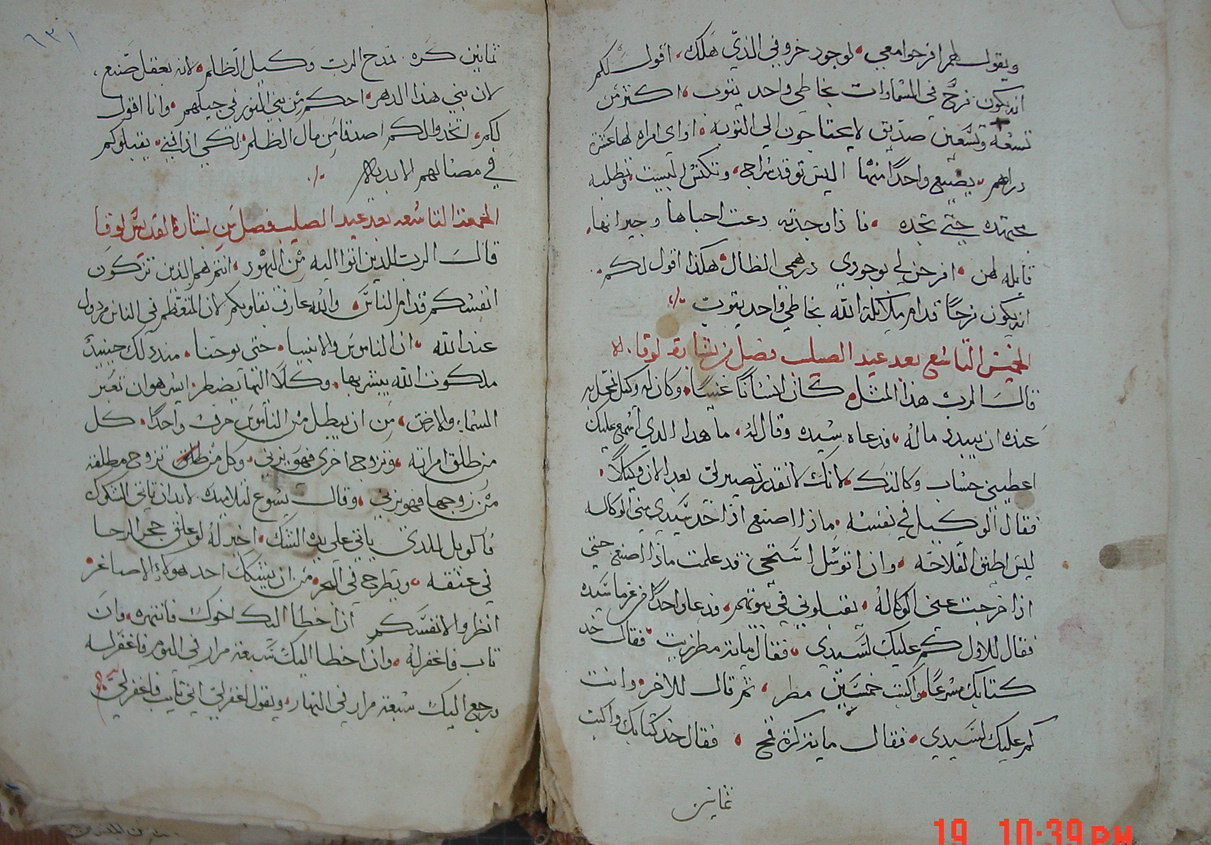 ويقول لهم افرحوا معي لوجود خروفي الذي هلك اقول لكم
انه يكون فرح في السماوات بخاطي واحد يتوب اكثر من
تسعه وتسعين صديق لا يحتاجون الي التوبه او اي امراه لها عشر
دراهم يضيع واحدا منها اليس توقد سراجا وتكنس البيت وتطلبه
مجتهده حتي تجده فاذا وجدته دعت احباها وجيرانها
قايله لهن افرحن لي لوجودي درهمي الضال هكذا اقول لكم
انه يكون فرحا قدام ملايكة الله بخاطي واحد يتوب
الخميس التاسع بعد عيد الصليب فصل من بشارة لوقا
قال الرب هذا المثل كان انسانا غنيا وكان له وكيل
عنه ان يبدد ماله فدعاه سيده وقال له ما هذا الدي اسمع عليك
اعطيني حساب وكالتك لانك لا تقدر تصير لي بعد الان وكيلا
فقال الوكيل في نفسه ماذا اصنع اذا اخد سيدي مني الوكاله
ليس اطيق الفلاحه وان اتوسل استحي قد علمت ماذا اصنع حتي
اذا خرجت عني الوكاله يقبلوني في بيوتهم فدعا واحدا من غرما سيده
فقال للاول كم عليك لسيدي فقال ماية مطر زيت فقال خد
كتابك مسرعا واكتب خمسين مطر ثم قال للاخر وانت
كم عليك لسيدي فقال ماية كر قمح فقال خد كتابك واكتب
ثمانين
٦٣١
ثمانين كره فمدح الرب وكيل الظلم لانه بعقل صنع
لان بني هذا الدهر احكم من بني النور في جيلهم وانا اقول
لكم اتخدوا لكم اصدقا من مال الظلم لكي اذا يقبلوكم
في مضالهم الابديه
الجمعة التاسعه بعد عيد الصليب فصل من بشارة القديس لوقا
قال الرب للدين اتوا اليه من اليهود انتم هم الدين تزكون
انفسكم قدام الناس والله عارف بقلوبكم لان المتعظم في الناس مردول
عند الله ان الناموس والانبيا حتي يوحنا مند دلك حينيد
ملكوت الله يبشر بها وكلا اليها يضطر ايسر هو ان تعبر
السما والارض من ان يبطل من الناموس حرف واحدا كل
من طلق امراته وتزوج اخري فهو يزني وكل من تزوج مطلقه
من زوجها فهو يزني وقال يسوع لتلاميده لابد ان تاتي الشكوك
فالويل للدي ياتي علي يده الشك اخير له لو علق حجر الرحا
في عنقه ويطرح في البحر من ان يشكك احد هولاء الاصاغر
انظروا لانفسكم ان اخطا اليك اخوك فانتهره وان
تاب فاغفر له وان اخطا اليك سبعة مرار في اليوم فاغفر له
ورجع اليك سبعة مرار في النهار ويقول اغفر لي اني تايب فاغفر له
19 10:39 PM